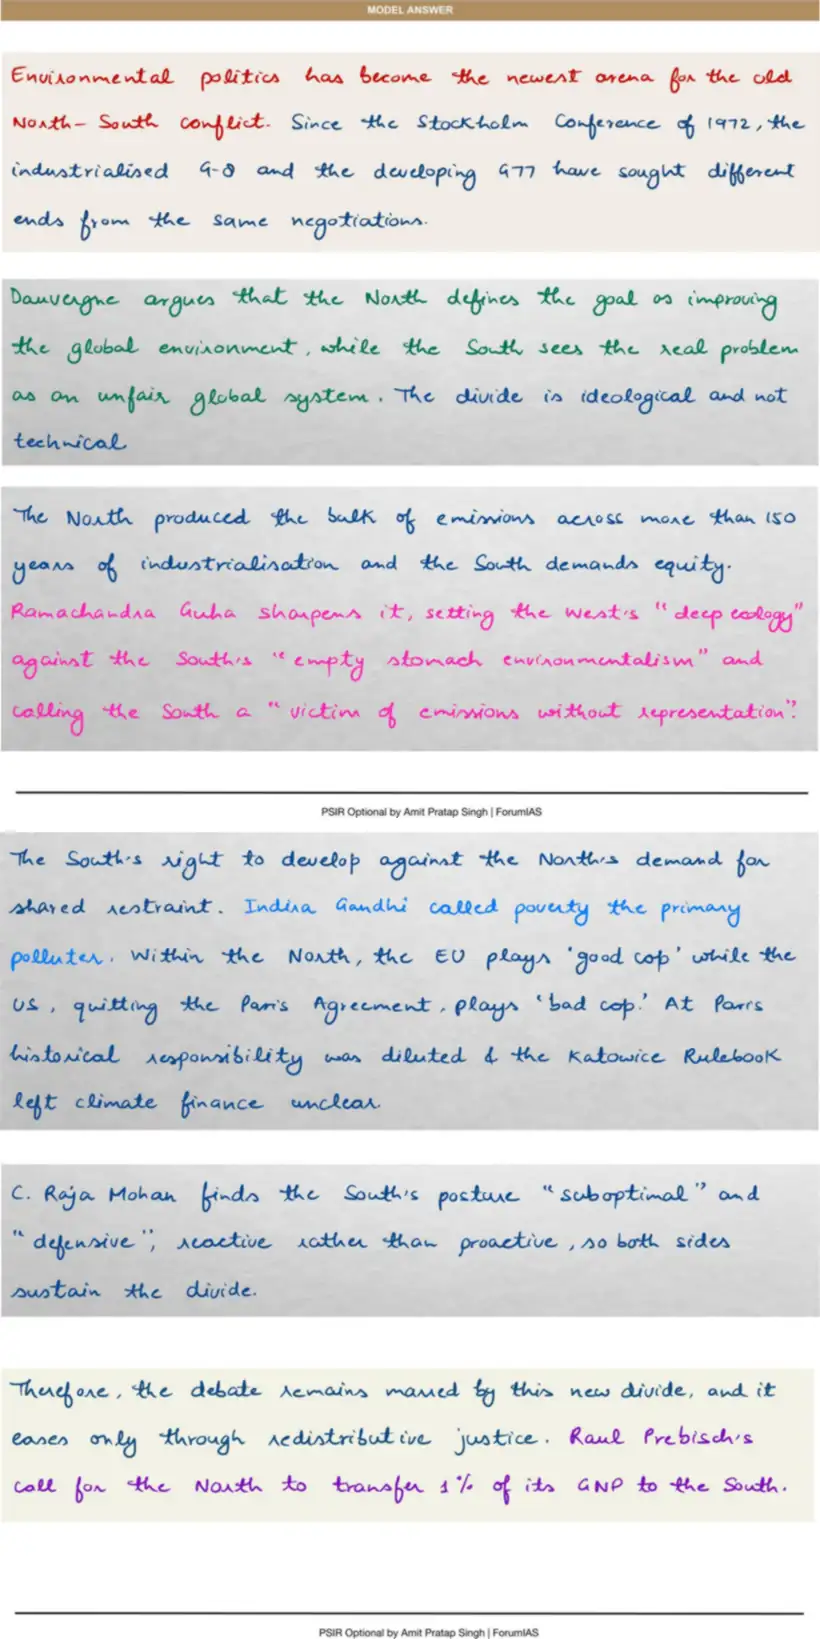 MODEL ANSWER
Environmental politics has become the newest arena for the old
North-South conflict. Since the Stockholm Conference of 1972, the
industrialised G-8 and the developing G77 have sought different
ends from the same negotiations.
Dauvergne argues that the North defines the goal as improving
the global environment, while the South sees the real problem
as an unfair global system. The divide is ideological and not
technical
The North produced the bulk of emissions across more than 150
years of industrialisation and the South demands equity.
Ramachandra Guha sharpens it, setting the West's "deep ecology"
against the South's "empty stomach environmentalism" and
calling the South a "victim of emissions without representation".
PSIR Optional by Amit Pratap Singh | ForumIAS
The South's right to develop against the North's demand for
shared restraint. Indira Gandhi called poverty the primary
polluter. Within the North, the EU plays 'good cop' while the
US, quitting the Paris Agreement, plays 'bad cop.' At Paris
historical responsibility was diluted & the Katowice Rulebook
left climate finance unclear.
C. Raja Mohan finds the South's posture "suboptimal" and
"defensive", reactive rather than proactive, so both sides
sustain the divide.
Therefore, the debate remains marred by this new divide, and it
eases only through redistributive justice. Raul Prebisch's
call for the North to transfer 1% of its GNP to the South.
PSIR Optional by Amit Pratap Singh | ForumIAS